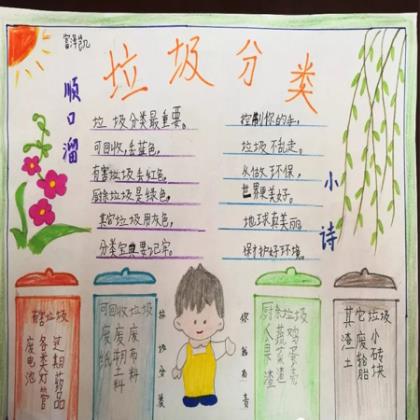 富泽凯
垃圾分类
顺口溜
垃圾分类最重要。
可回收,丢蓝色,
有害垃圾丢红色。
厨余垃圾是绿色,
其它垃圾用灰色,
分类宝典要记牢。
控制你的手,
垃圾不乱走。
从估攵环保,
世界更美好。
地球真美丽,
保护好环境。
小诗
有害垃圾
过期药品
各类灯管
废电池
可回收垃圾
废布料
废塑料
废纸
垃圾分类
你我有责
厨余垃圾
鸡蛋壳
蔬菜渣
果渣
其它垃圾
小砖块
废轮胎
渣土